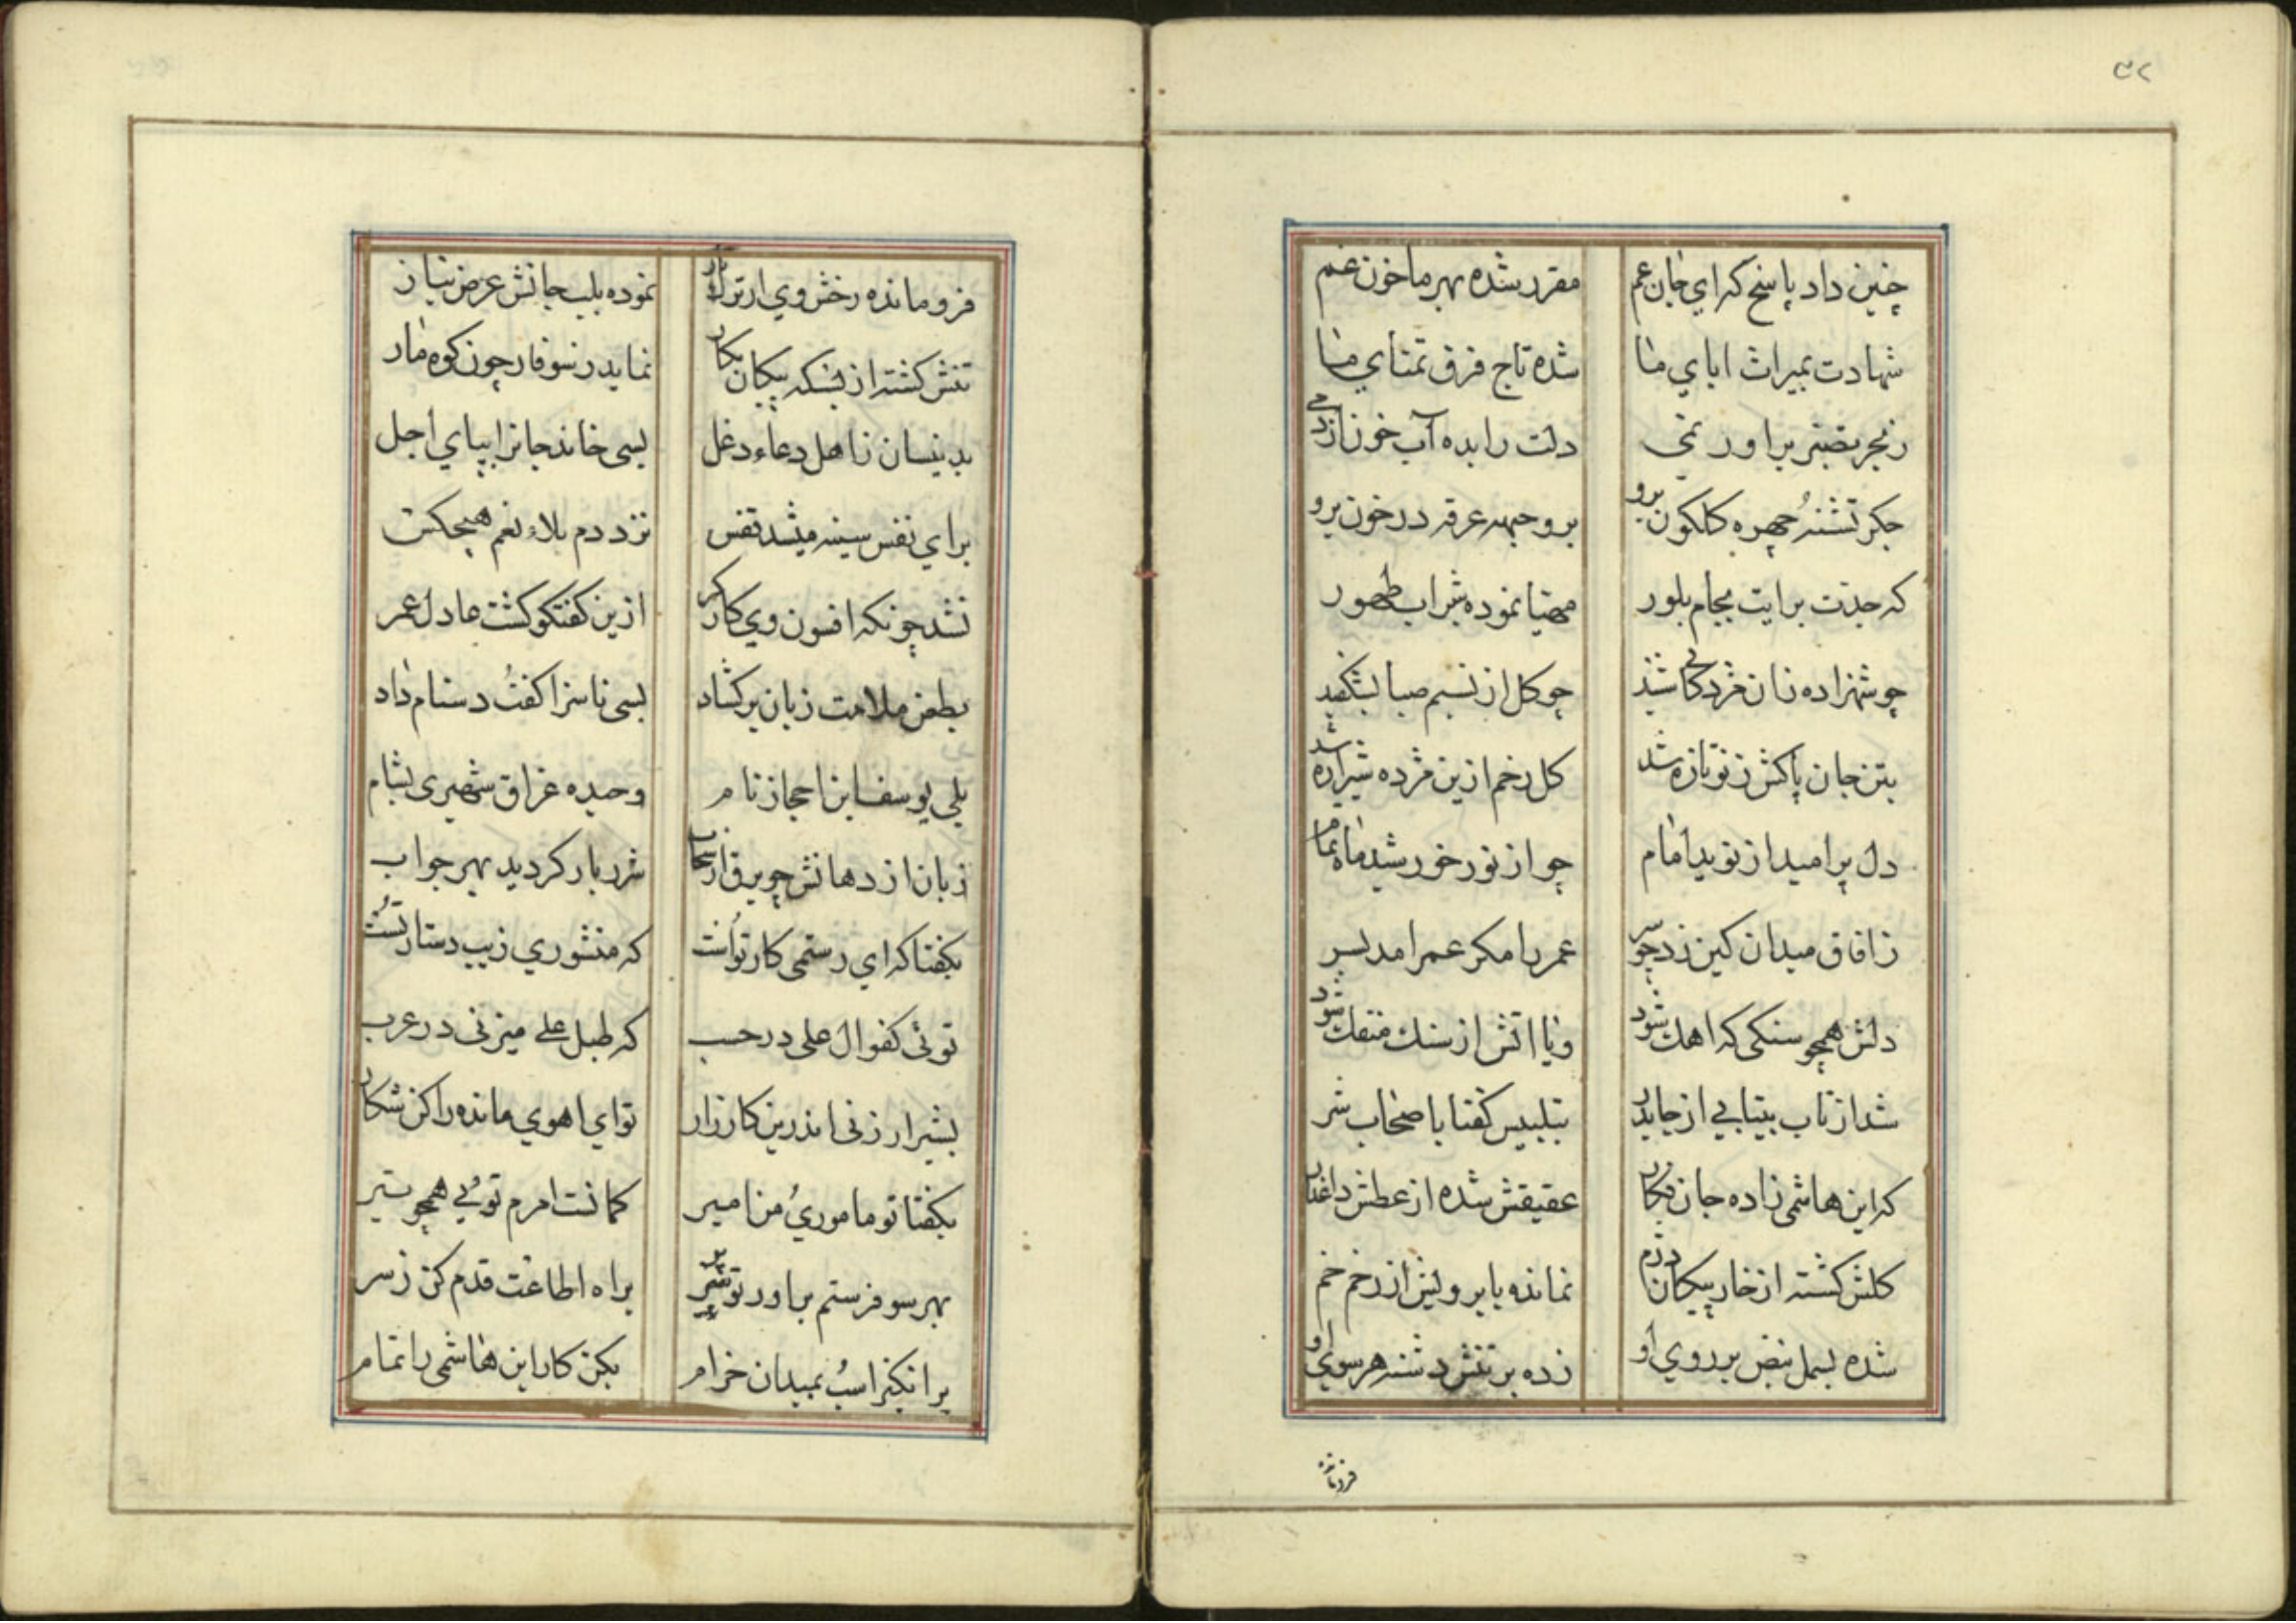 ۳۲
چنین داد پاسخ که ای جان عم مقرر شده بهر ما خون غم
شهادت بمیراث ابای ما شده تاج فرق تمنای ما
دلت را بده آب خون
جکر تشنهٔ چهره کلکون برو برو جبهه عرقه در خون برو
که جدت برایت بجام بلور مهیا نموده شراب طهور
چو شهزاده زان مژدکانی شنید چو کل از نسیم صبا بشکفید
بتن جان پاکش ز نو تازه شد کل زخم ازین مژده شیرازه شد
دل پرامید از نوید امام چو از نور خورشید ماه تمام
ز افاق میدان کین زد چو سر عمر را مکر عمر امد بسر
دلش همچو سنکی که اهک شود ویا اتش از سنك منفك شود
شد از تاب بیتابی از جا بدر بتلبیس کفتا باصحاب شر
که این هاشمی زاده جان فکار عقیقش شده از عطش داغدار
کلش کشته از خار پیکان دژم نمانده بابرویش از زخم خم
شده بسمل نبض بر روی او زده بر تنش دشنه هر سوی او
فرومانده
فرومانده رخش وی از ترك تاز نموده بلب جانش عرض نیاز
تنش کشته از بسکه پیکان نکار نماید ز سوفار چون کوه مار
بدینسان ز اهل دعاء دغل بسی خاند جانرا بپای اجل
برای نفس سینه میشد قفس نزد دم بلاء نعم هیچکس
نشد چونکه افسون وی کارکر ازین کفتکو کشت مادل عمر
بطعن ملامت زبان برکشاد بسی ناسزا کفت دشنام داد
بلی یوسف ابن احجاز نام وحیده عراق شهیری بشام
زبان از دهانش چو برق از سحاب شرر بار کردید بهر جواب
بکفتا که ای رستمی کار تواست که منشوری زیب دستار تست
توئی کفو ال علی در حسب که طبل علی میزنی در عرب
بشیرار زنی اندرین کارزار تو ای اهوی مانده را کن شکار
بکفتا تو ماموری من امیر کمانت امرم توئی همچو تیر
بهر سو فرستم براور تو پر براه اطاعت قدم کن ز سر
برانکیز اسب بمیدان خرام بکن کار این هاشمی را تمام